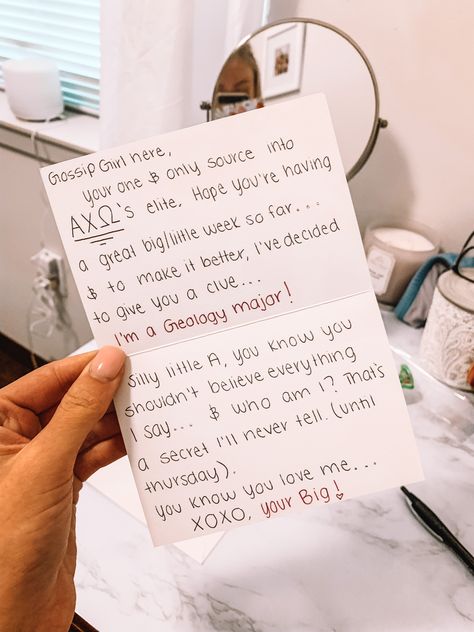 Gossip Girl here,
your one & only source into
ΑΧΩ's elite. Hope you're having
a great big/little week so far...
& to make it better, I've decided
to give you a clue...
I'm a Geology major!
silly little A, you know you
shouldn't believe everything
I say... & who am I? That's
a secret I'll never tell. (until
thursday).
you know you love me...
XOXO, your Big!